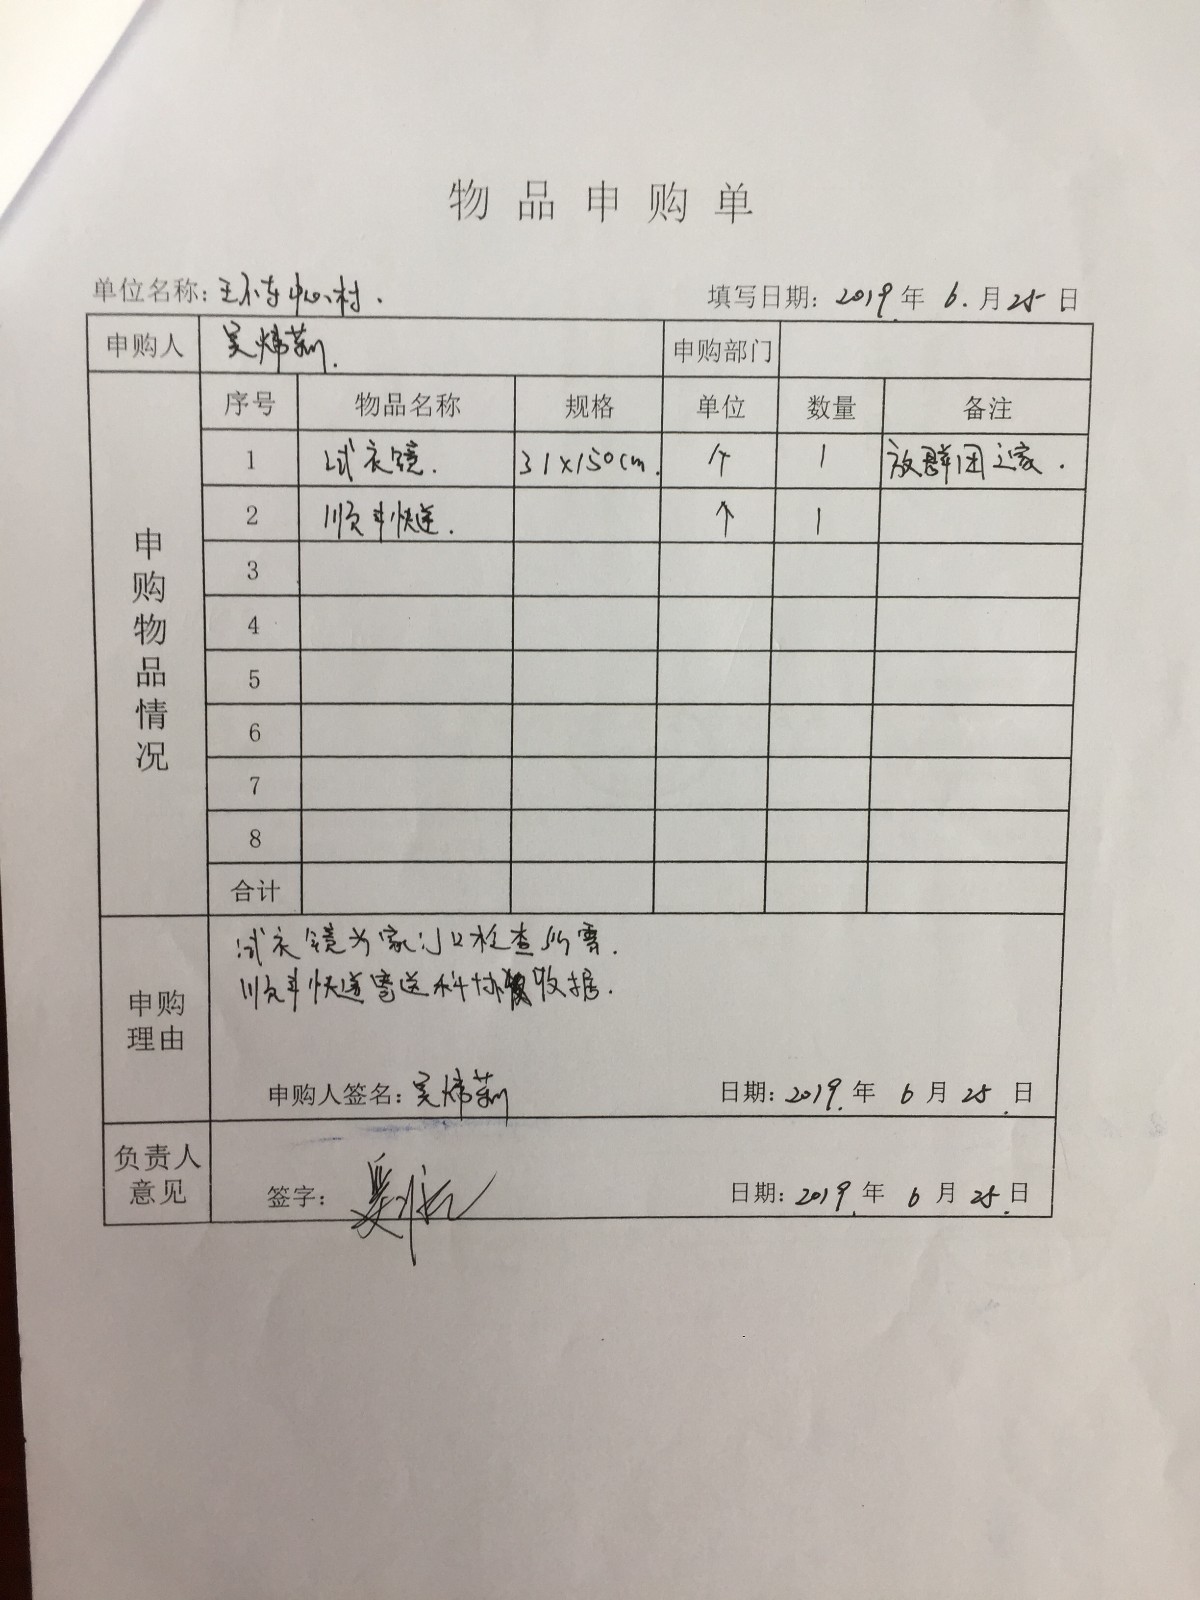 物品申购单
单位名称: 王下寺中心村.
填写日期: 2019.年 6.月25日
申购人 吴炜莉. 申购部门
申购物品情况
序号 物品名称 规格 单位 数量 备注
1 试衣镜. 31x150cm. 个 1 放群团之家.
2 顺丰快递. 个 1
3
4
5
6
7
8
合计
申购理由
试衣镜为家门口检查所需.
顺丰快递寄送科协收据.
申购人签名: 吴炜莉 日期: 2019.年 6月25.日
负责人意见
签字: 日期: 2019.年 6月25.日